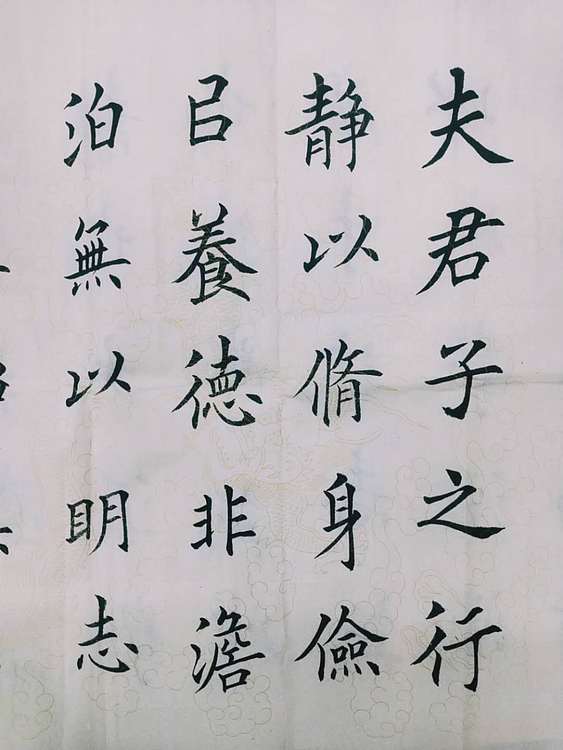 夫君子之行
静以脩身儉
㠯養德非澹
泊無以眀志